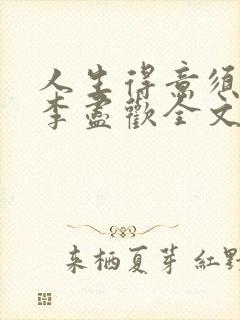 人生得意須
李盡歡全文
来栖夏芽 紅野